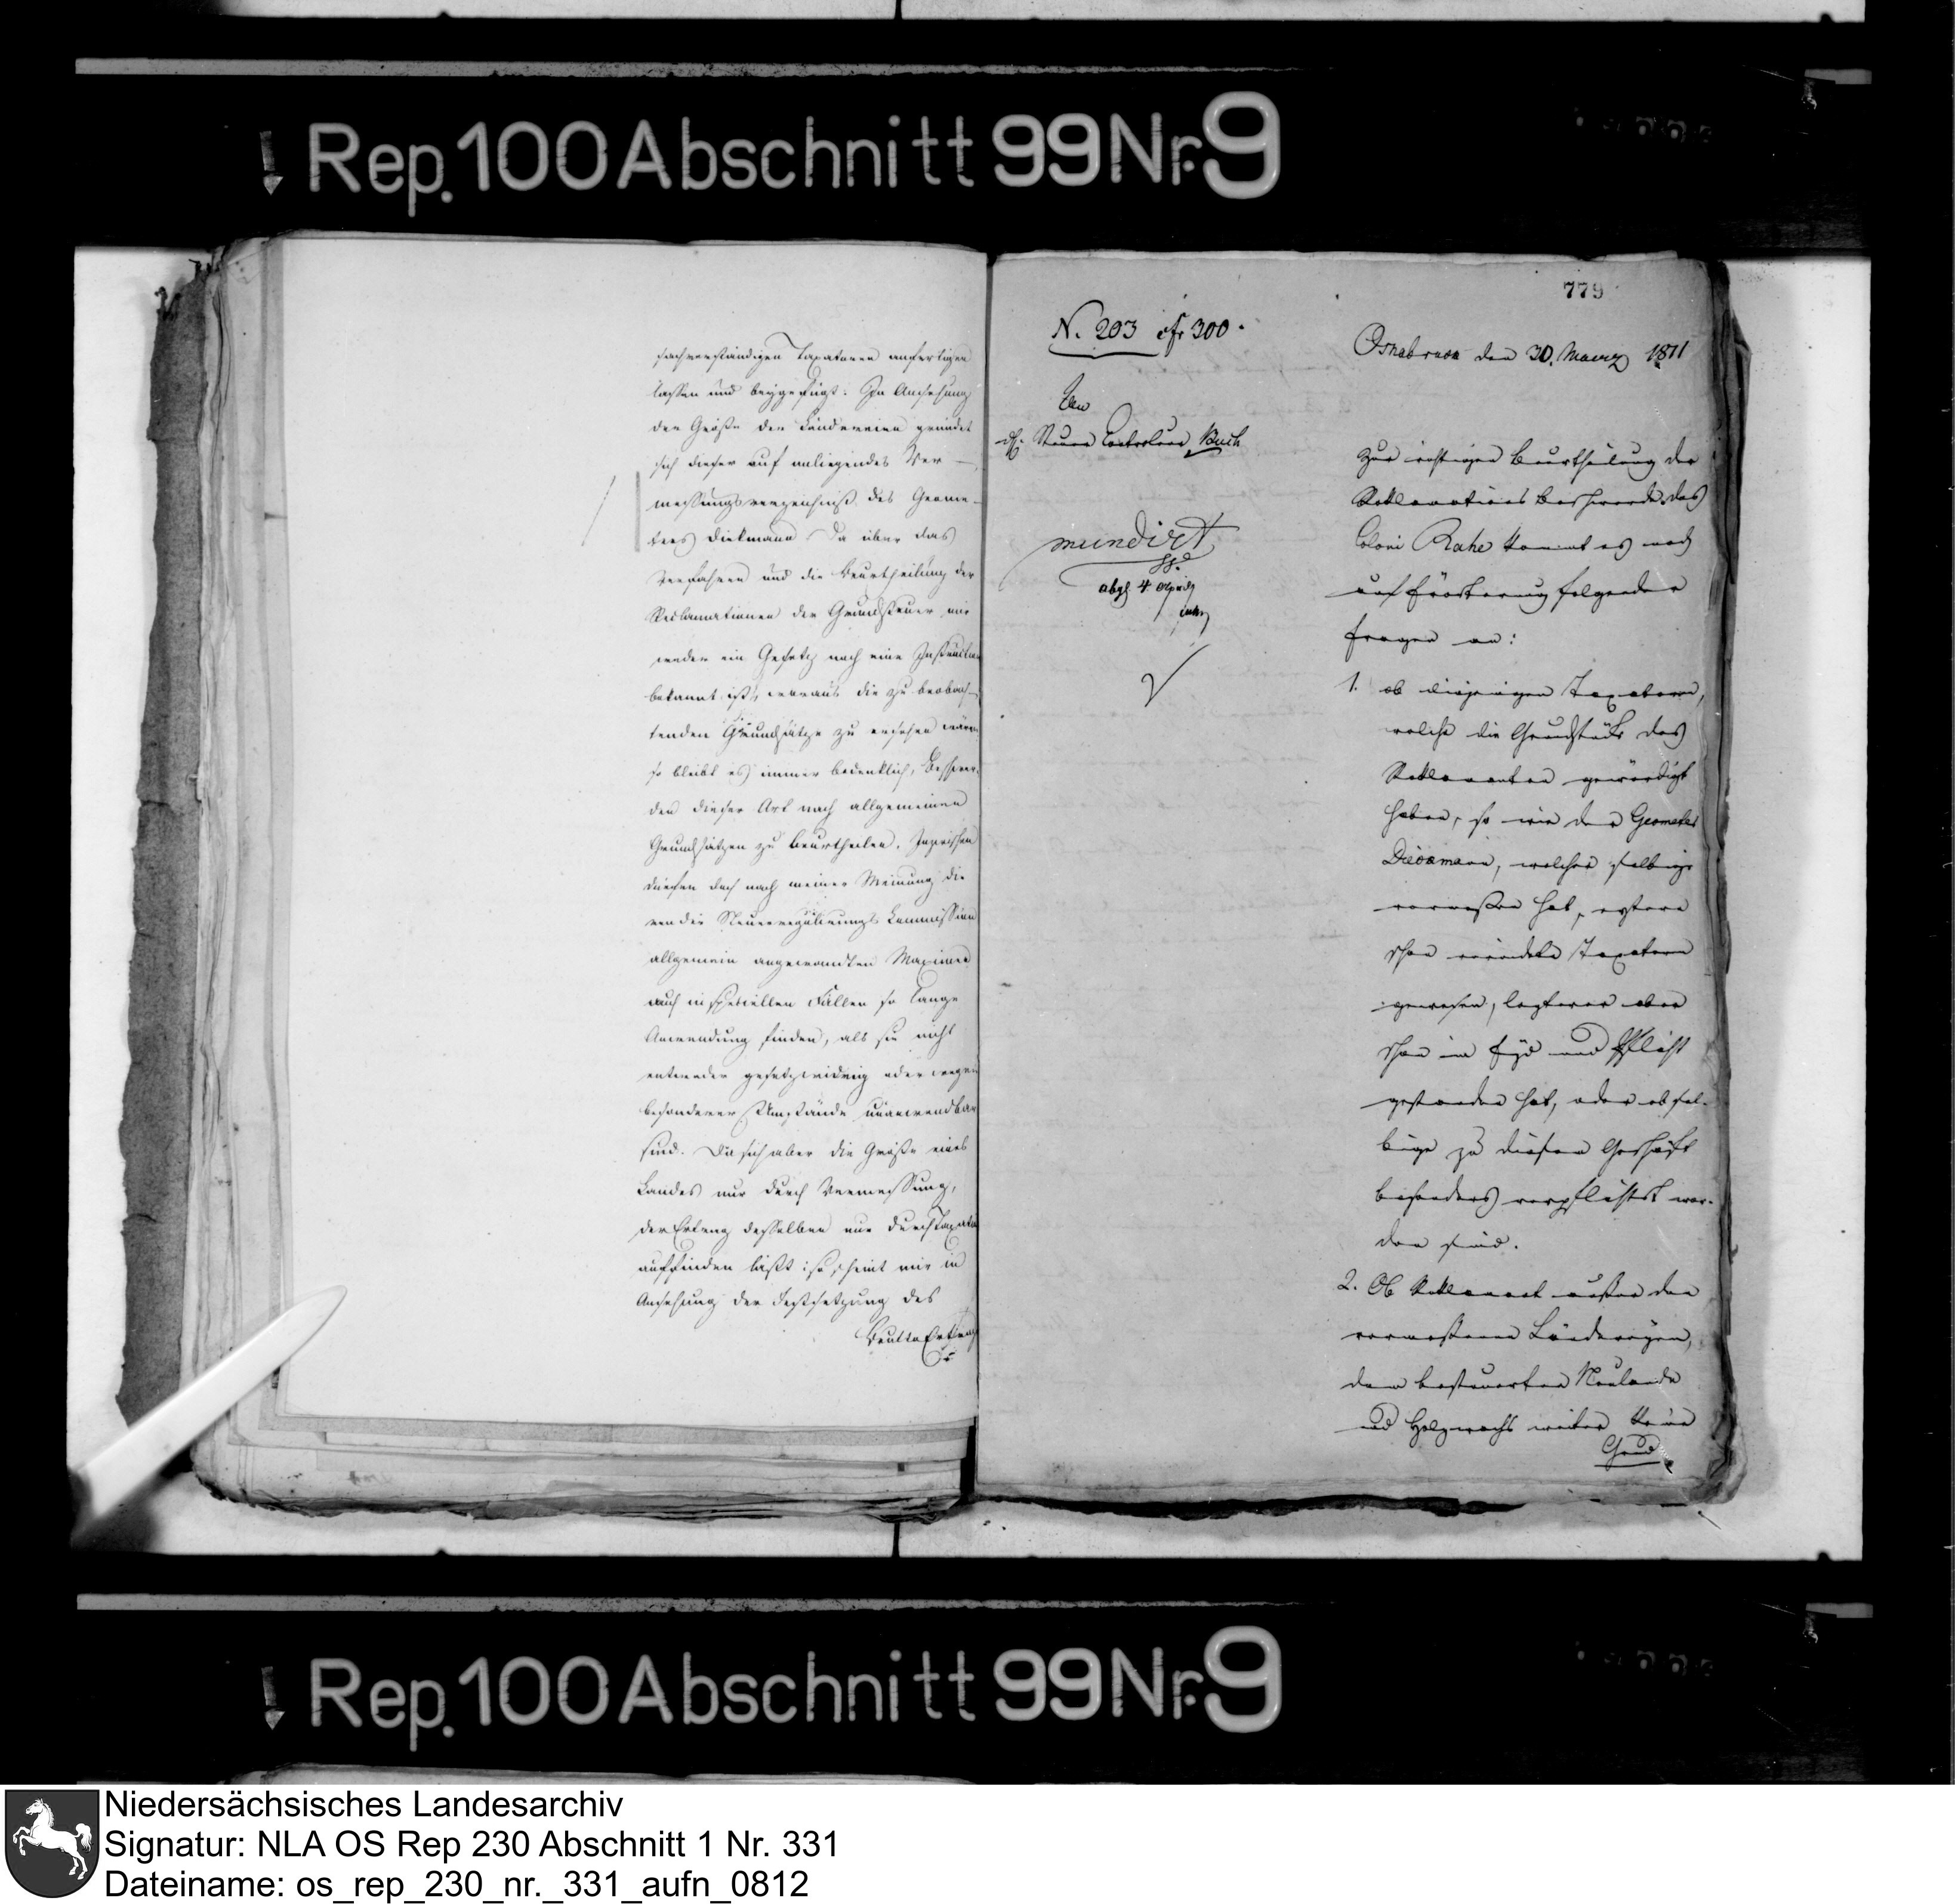 Rep. 100 Abschnitt 99 Nr. 9
sachverständigen Taxatoren anfertigen
lassen und beygefügt. In Ansehung
der Größe der Ländereien gründet
sich dieser auf anliegendes Ver-
messungsverzeichniß des Geome-
ters Diekmann. Da über das
Verfahren und die Beurtheilung der
Reclamationen der Grundsteuer mir
weder ein Gesetz noch eine Instruction
bekannt ist, woraus die zu beobach-
tenden Grundsätze zu ersehen wären
so bleibt es immer bedenklich, Beschwer-
den dieser Art nach allgemeinen
Grundsätzen zu beurtheilen. Inzwischen
dürfen doch nach meiner Meinung die
von der Steuerregulirungs Commission
allgemein angewandten Maximen
auch in speciellen Fällen so lange
Anwendung finden, als sie nicht
entweder gesetzwidrig oder wegen
besonderer Umstände unanwendbar
sind. Da sich aber die Größe eines
Landes nur durch Vermessung,
der Ertrag desselben nur durch Taxation
auffinden läßt: so scheint mir in
Ansehung der Festsetzung des
Brutto Ertrags
779
N. 203 cfr 300.
Osnabruck den 30. Maerz 1811
Den
Steuer Controleur Buch
mundirt
abgl 4 April
Zur richtigen Beurtheilung der
Reklamations Beschwerde des
Coloni Rahe kommt es noch
auf Erörterung folgender
Fragen an:
1. ob diejenigen Taxatoren,
welche die Grundstücke des
Reklamanten gewürdigt
haben, so wie der Geometer
Dieckmann, welcher selbige
vermessen hat, erstere
schon vereidete Taxatoren
gewesen, letzterer aber
schon in Eyd und Pflicht
gestanden hat, oder ob sel-
bige zu diesem Geschäft
besonders verpflichtet wor-
den sind.
2. Ob Reklamant außer den
vermessenen Ländereyen,
dem besteuerten Neulande
und Holzwachs weiter keine
Grund
Rep. 100 Abschnitt 99 Nr. 9
Niedersächsisches Landesarchiv
Signatur: NLA OS Rep 230 Abschnitt 1 Nr. 331
Dateiname: os_rep_230_nr._331_aufn_0812